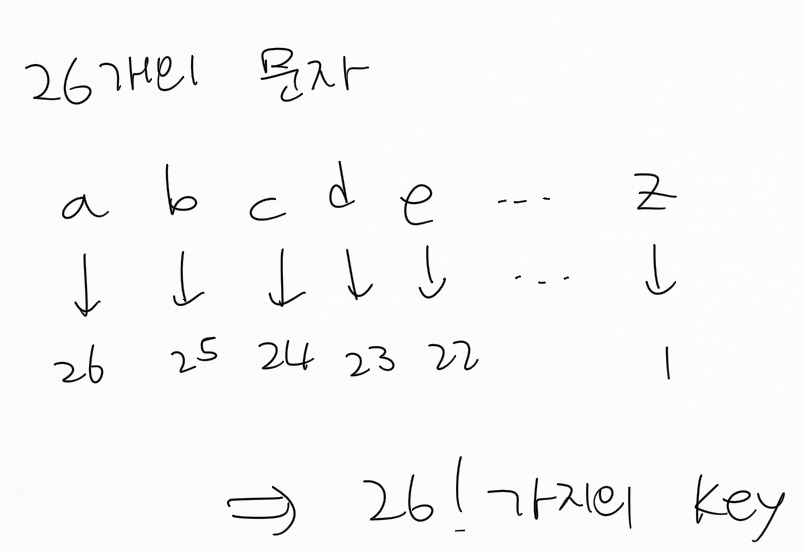 26개의 문자
a b c d e --- z
↓ ↓ ↓ ↓ ↓ ... ↓
26 25 24 23 22 1
⇒ 26! 가지의 key